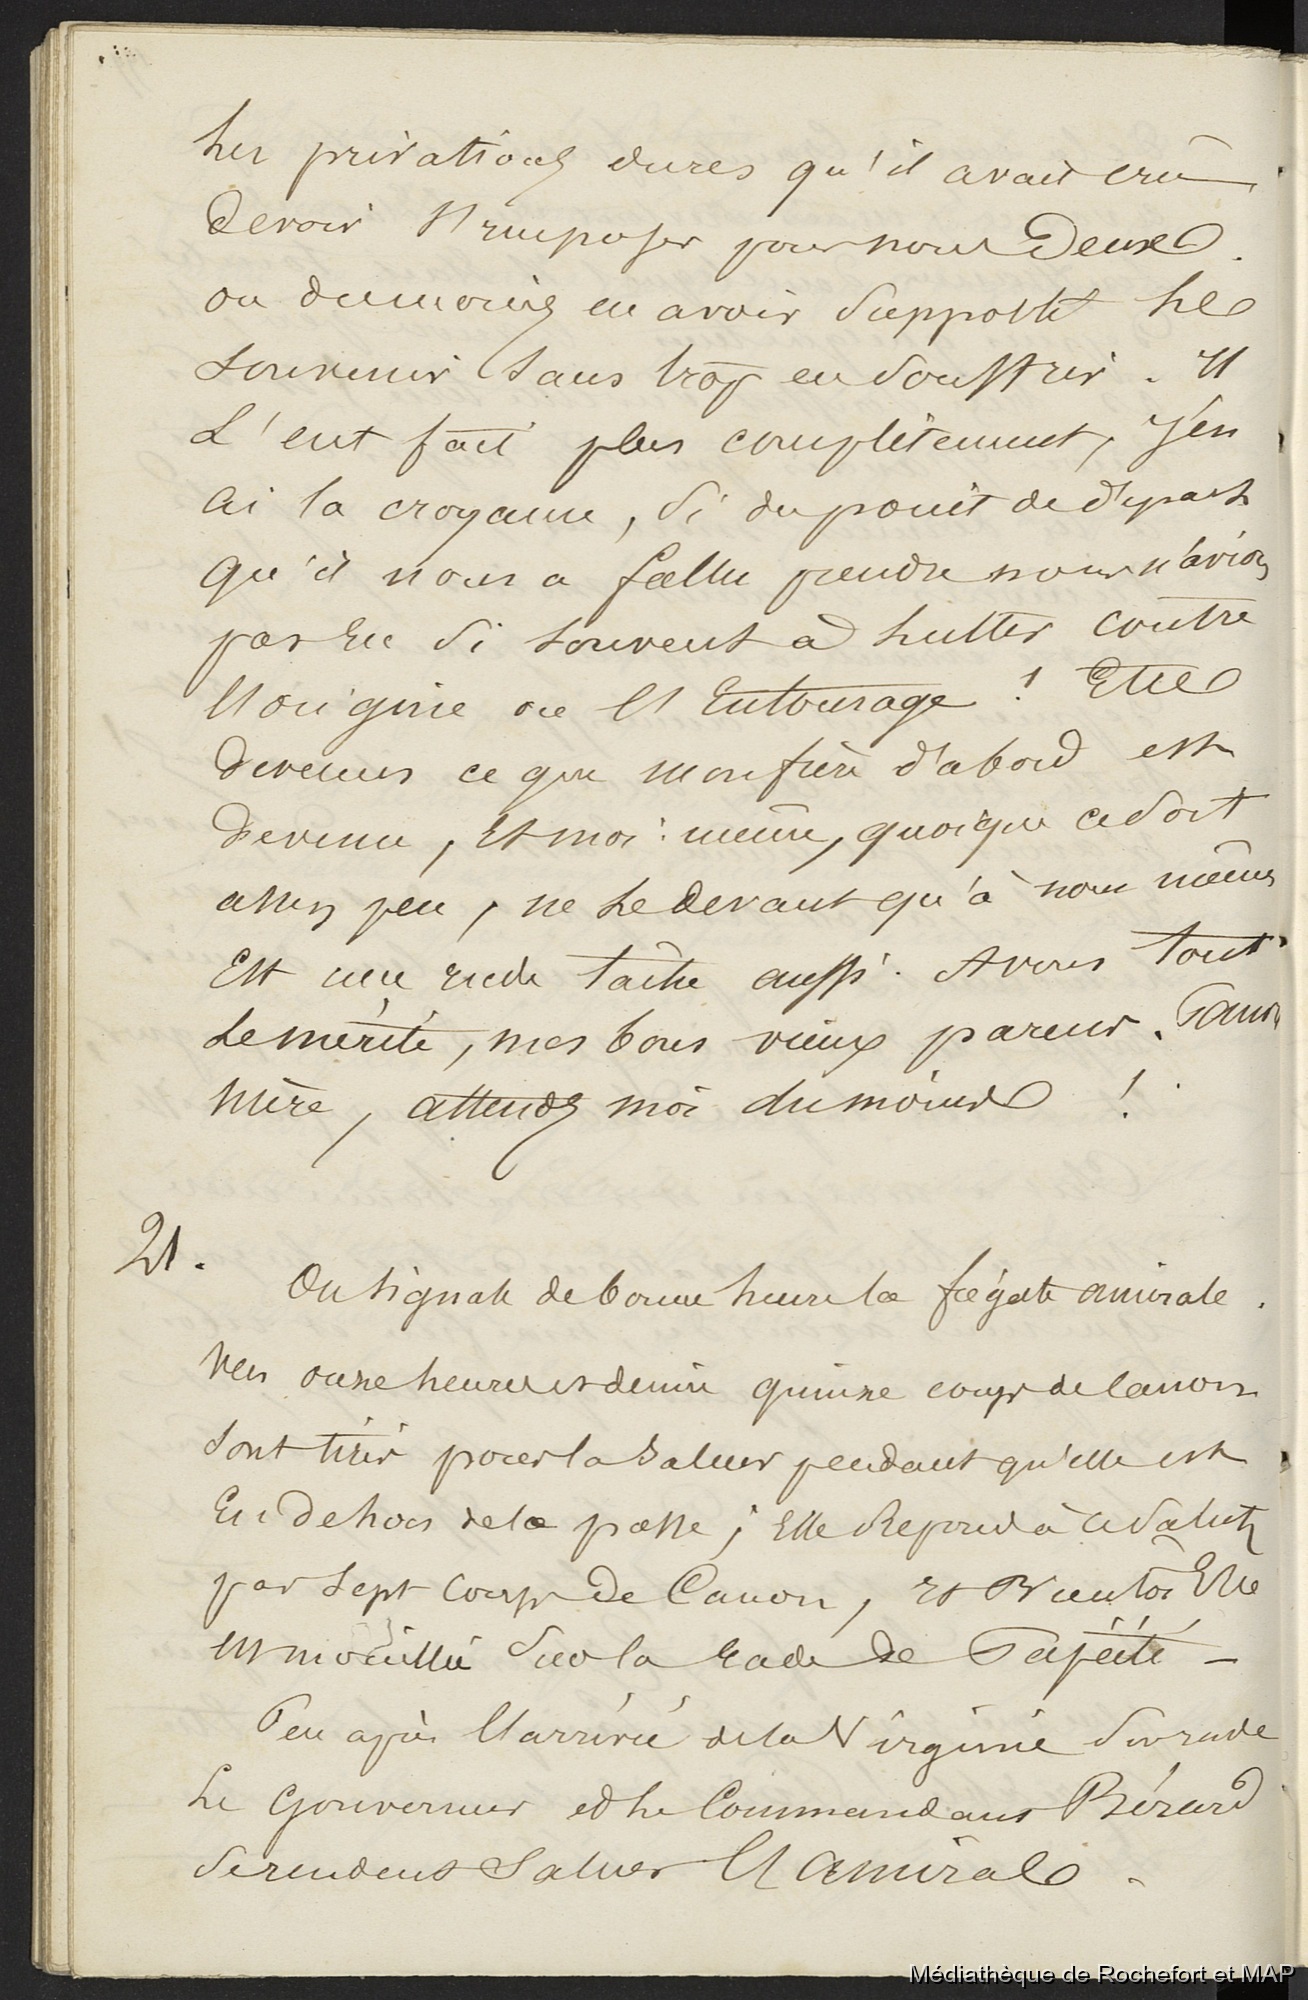 les privations dures qu'il avait crû
devoir s'imposer pour nous deux.
ou dumoins en avoir supporté le
souvenir sans trop en souffrir. Il
l'eut fait plus complètement, j'en
ai la croyance, si du point de départ
qu'il nous a fallu prendre nous n'avions
pas eu si souvent à lutter contre
l'origine ou l'Entourage ! Etre
devenus ce que mon frère d'abord est
devenu, et moi-même, quoique ce soit
assez peu, ne le devant qu'à nous mêmes
est une rude tache aussi. A vous tout
le mérite, mes bons vieux parens. Pauvre
Mère, attendez moi dumoins !
21.
On signale de bonne heure la frégate amirale.
Vers onze heures et demie quinze coups de canon
sont tirés pour la saluer pendant qu'elle est
En dehors de la passe ; Elle Repond à ce salut
par sept coups de Canon, et Bientôt Elle
est mouillée sur la rade de Papéïti -
Peu après l'arrivée de la Virginie sur rade
Le Gouverneur et le Commandant Bérard
se rendent saluer l'amiral.
Médiathèque de Rochefort et MAP